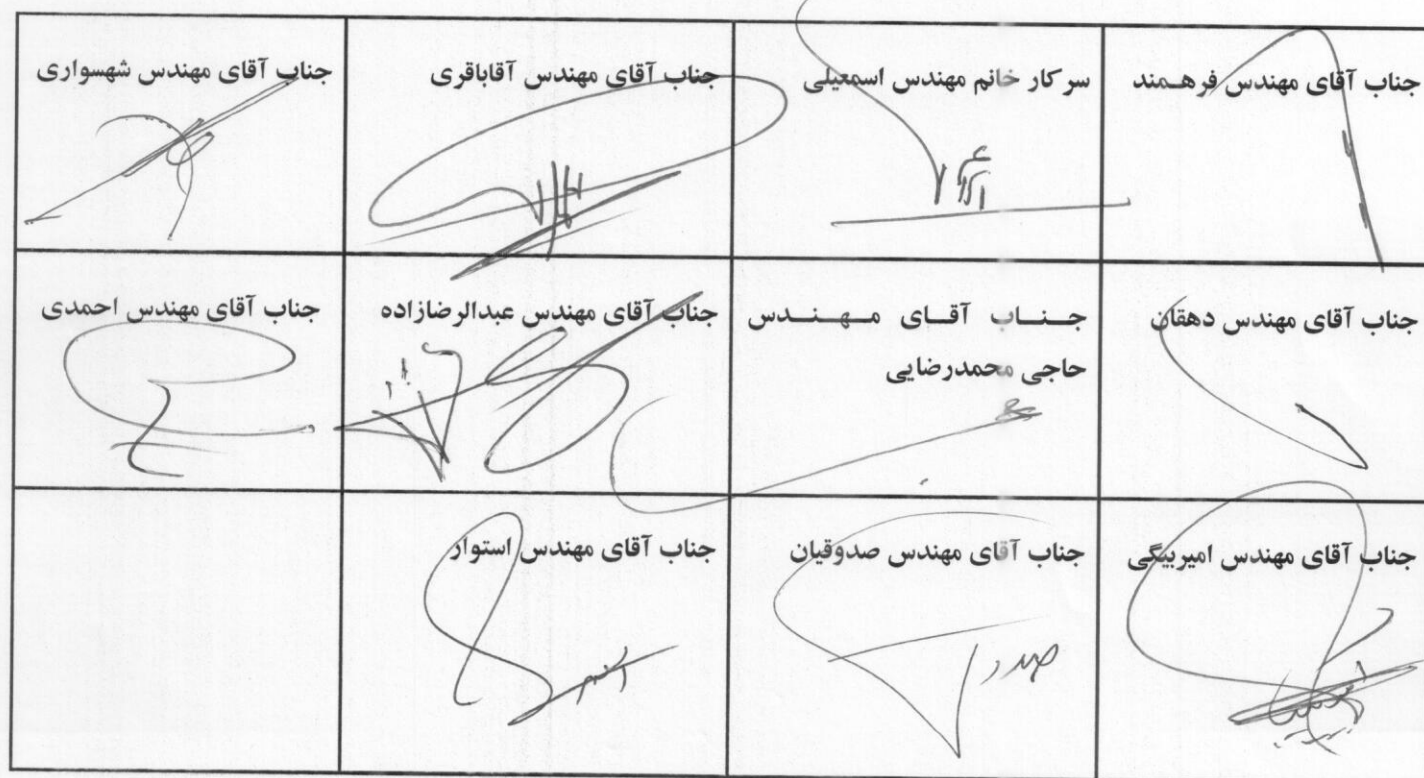 جناب آقای مهندس فرهـمند
سرکار خانم مهندس اسمعیلی
جناب آقای مهندس آقاباقری
جناب آقای مهندس شهسواری
جناب آقای مهندس دهقان
جـنـاب آقـای مـهـنـدس
حاجی محمدرضایی
جناب آقای مهندس عبدالرضازاده
جناب آقای مهندس احمدی
جناب آقای مهندس امیربیگی
جناب آقای مهندس صدوقیان
جناب آقای مهندس استوار